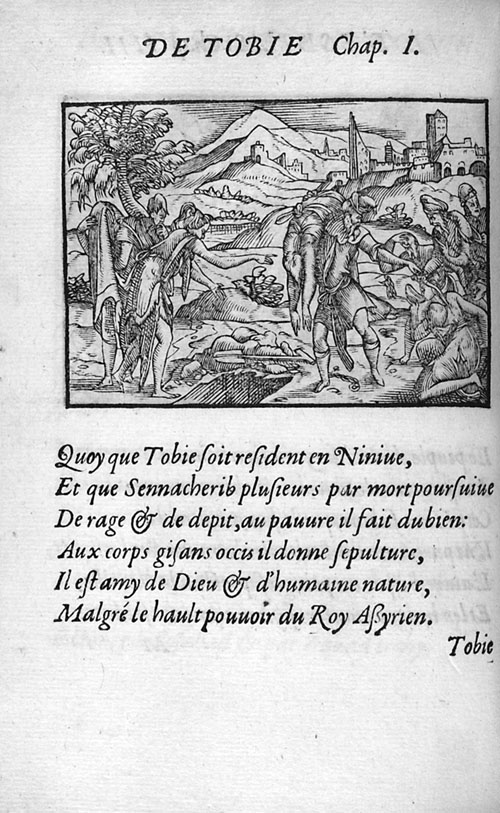 DE TOBIE Chap. I.
Quoy que Tobie soit resident en Niniue,
Et que Sennacherib plusieurs par mort poursuiue
De rage & de depit, au pauure il fait du bien:
Aux corps gisans occis il donne sepulture,
Il est amy de Dieu & d'humaine nature,
Malgré le hault pouuoir du Roy Aßyrien.
Tobie